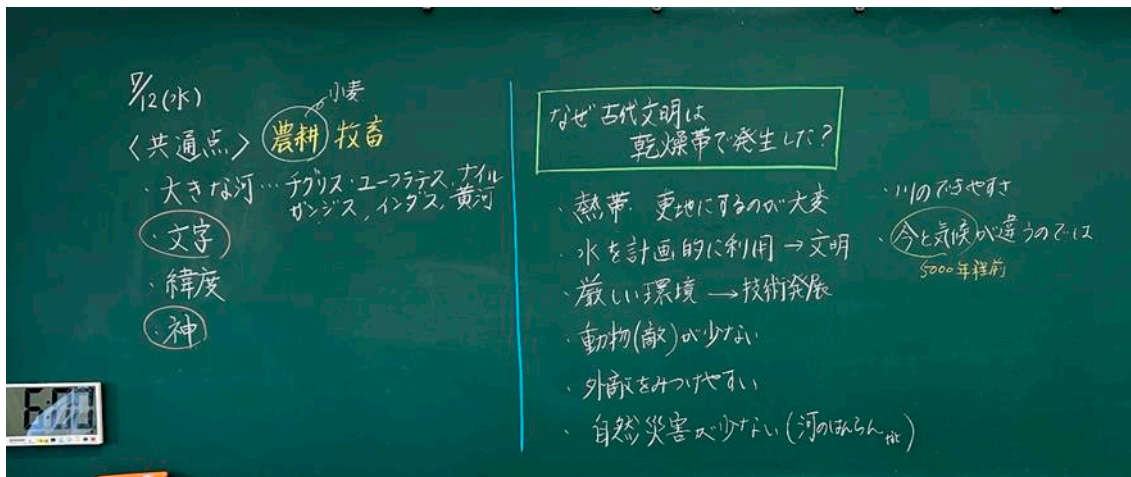 7/12(水)
小麦
〈共通点〉 農耕 牧畜
・大きな河…チグリス・ユーフラテス, ナイル
ガンジス, インダス, 黄河
・文字
・緯度
・神
なぜ古代文明は
乾燥帯で発生した?
・熱帯 更地にするのが大変
・水を計画的に利用→文明
・厳しい環境→技術発展
・動物(敵)が少ない
・外敵をみつけやすい
・自然災害が少ない(河のはんらん
・川のできやすさ
・今と気候が違うのでは
5000年程前